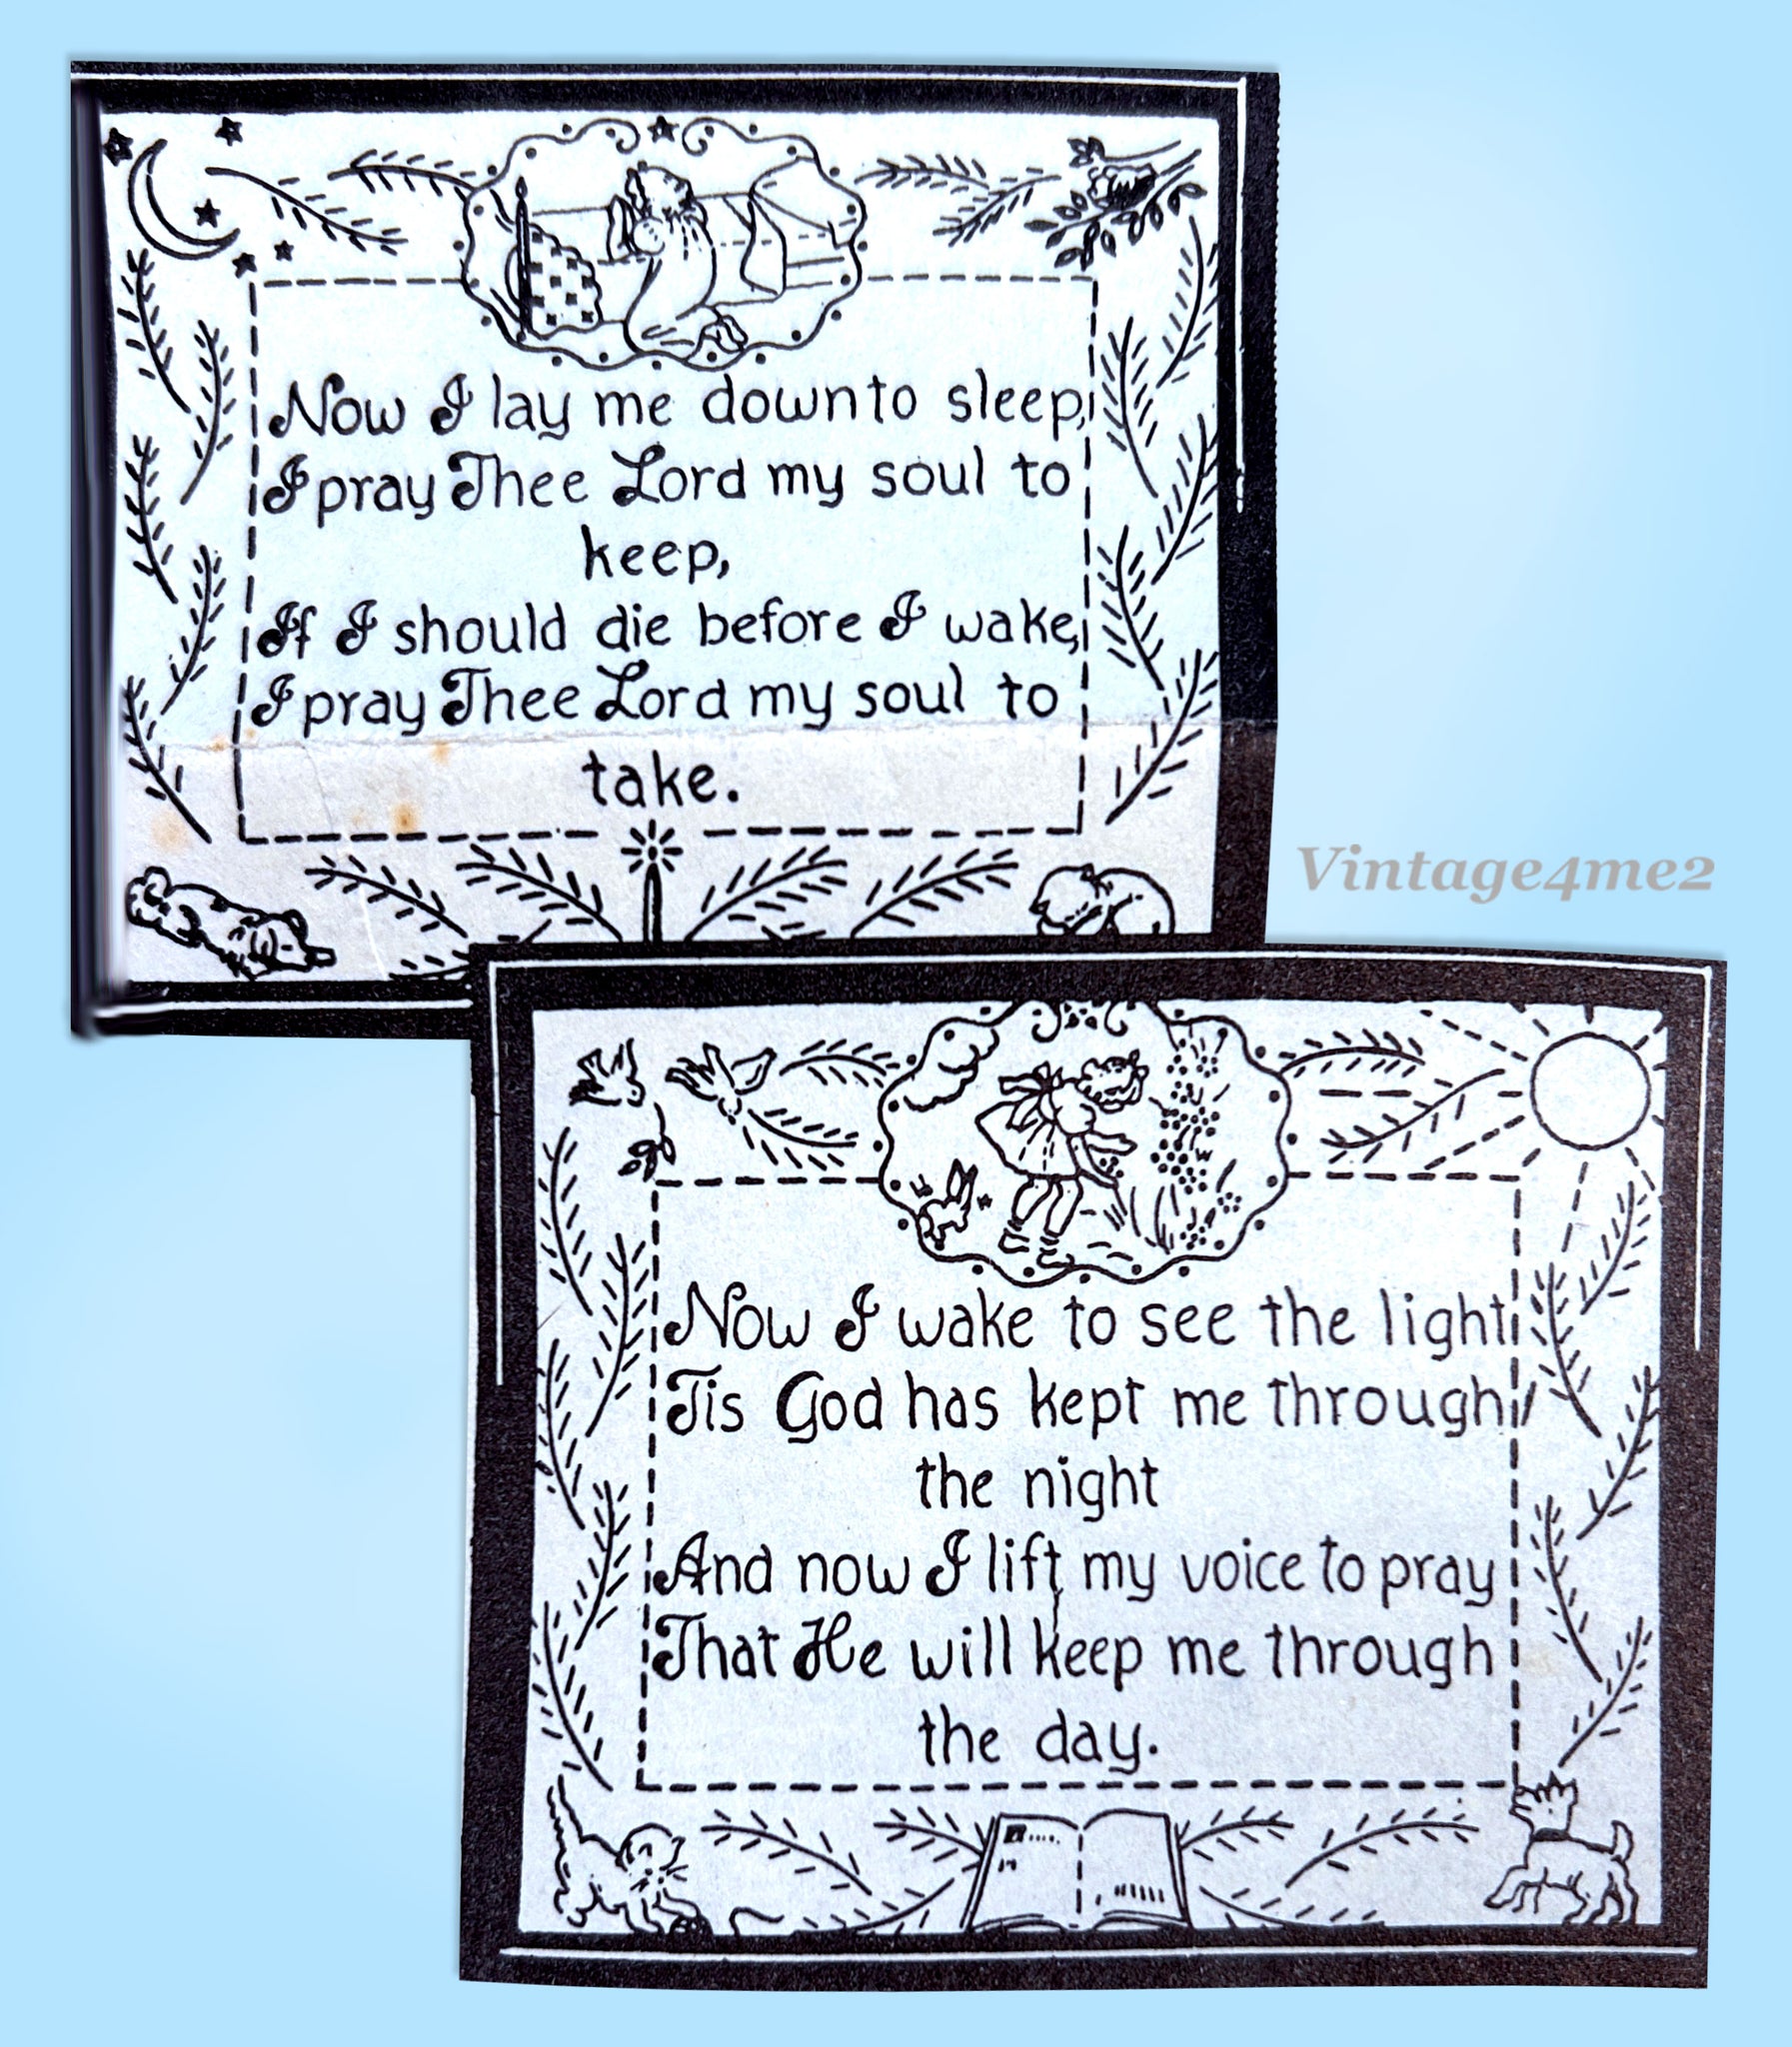 Now I lay me down to sleep,
I pray Thee Lord my soul to
keep,
If I should die before I wake,
I pray Thee Lord my soul to
take.
Vintage4me2
Now I wake to see the light
Tis God has kept me through
the night
And now I lift my voice to pray
That He will keep me through
the day.